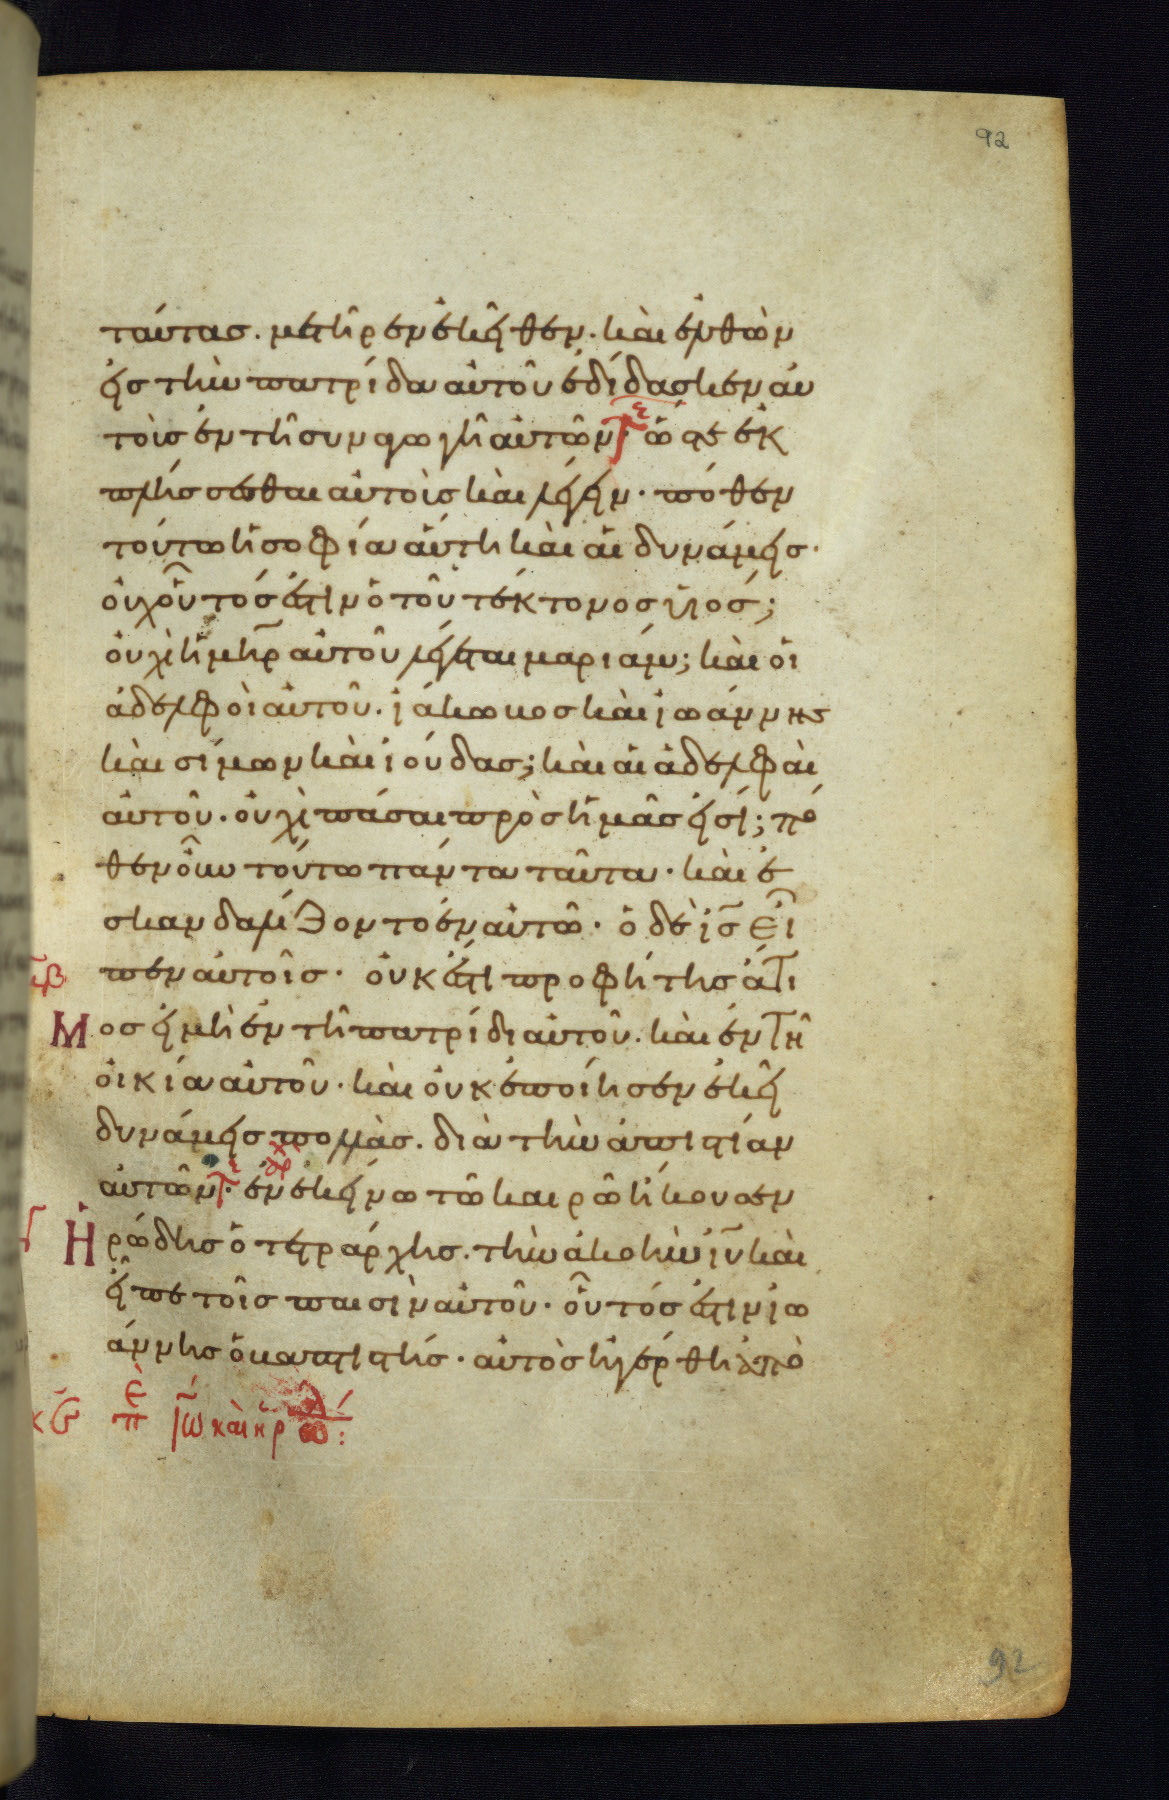 92
ταύτας. μετῆρεν ἐκεῖθεν. καὶ ἐλθὼν
εἰς τὴν πατρίδα αὐτοῦ ἐδίδασκεν αὐ
τοὺς ἐν τῆ συναγωγῆ αὐτῶν· ὥστε ἐκ
πλήσσεσθαι αὐτοὺς καὶ λέγειν· πόθεν
τούτω ἡ σοφία αὕτη καὶ αἱ δυνάμεις·
οὐχ οὗτός ἐστιν ὁ τοῦ τέκτονος υἱός;
οὐχὶ ἡ μηρ αὐτοῦ λέγεται μαριάμ; καὶ οἱ
ἀδελφοὶ αὐτοῦ. ἰάκωβος καὶ ἰωάννης
καὶ σίμων καὶ ἰούδας; καὶ αἱ ἀδελφαὶ
αὐτοῦ. οὐχὶ πᾶσαι πρὸς ἡμᾶς εἰσί; πό
θεν οὖν τούτω πάντα ταῦτα· καὶ ἐ
σκανδαλίζοντο ἐν αὐτῶ· ὁ δὲ ις εἶ
πεν αὐτοῖς· οὐκ ἔστι προφήτης ἄτι
μος εἰ μὴ ἐν τῆ πατρίδι αὐτοῦ. καὶ ἐν τῆ
οἰκία αὐτοῦ· καὶ οὐκ ἐποίησεν ἐκεῖ
δυνάμεις πολλὰς. διὰ τὴν ἀπιστίαν
αὐτῶν· ἐν ἐκείνω τῶ καιρῶ ἤκουσεν
Ἡρώδης ὁ τετράρχης. τὴν ἀκοὴν ιυ καὶ
εἶπε τοῖς παισὶν αὐτοῦ· οὗτός ἐστιν ἰω
άννης ὁ βαπτιστής· αὐτὸς ἠγέρθη ἀπὸ
92